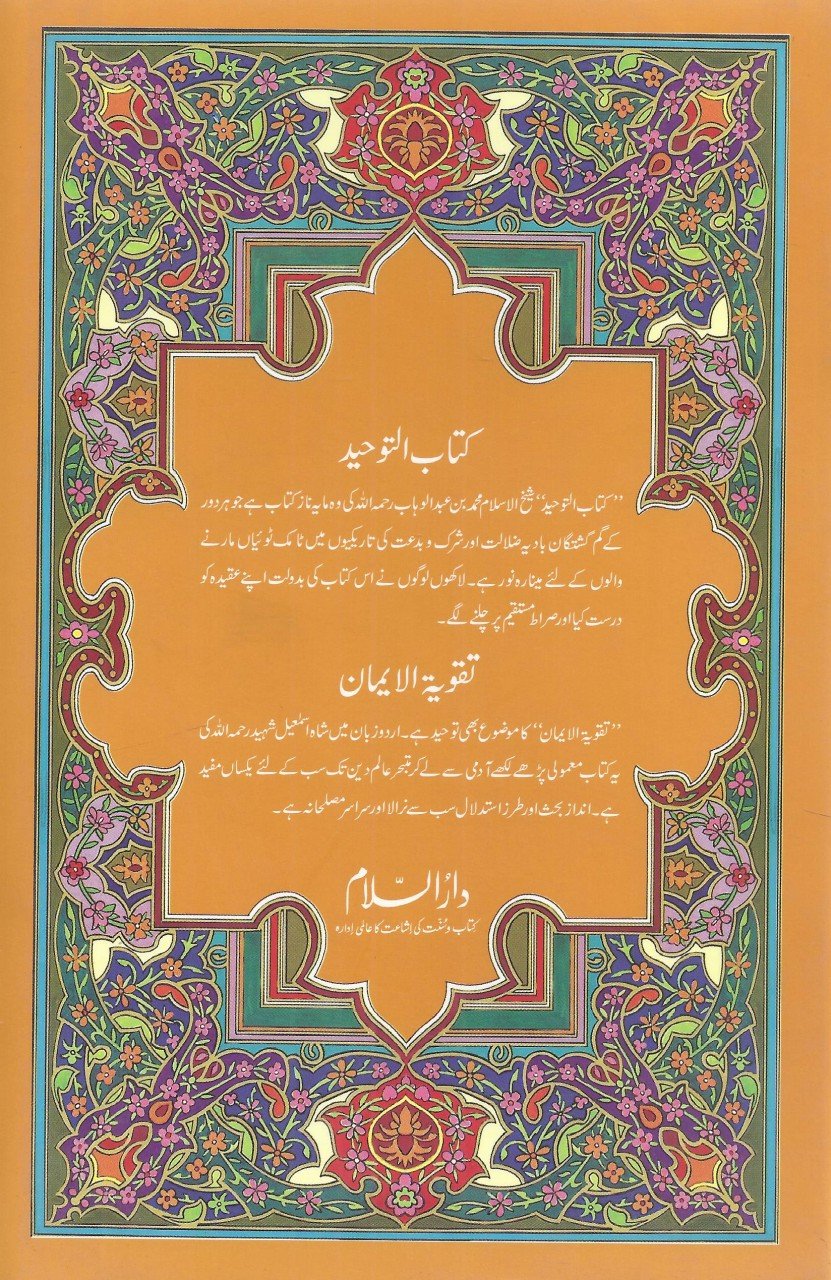 کتاب التوحید
”کتاب التوحید“ شیخ الاسلام محمد بن عبد الوہاب رحمہ اللہ کی وہ مایہ ناز کتاب ہے جو ہر دور
کے گم گشتگان بادیہ ضلالت اور شرک و بدعت کی تاریکیوں میں ٹامک ٹوئیاں مارنے
والوں کے لئے مینارہ نور ہے۔ لاکھوں لوگوں نے اس کتاب کی بدولت اپنے عقیدہ کو
درست کیا اور صراط مستقیم پر چلنے لگے۔
تقویۃ الایمان
”تقویۃ الایمان“ کا موضوع بھی توحید ہے۔ اردو زبان میں شاہ اسمٰعیل شہید رحمہ اللہ کی
یہ کتاب معمولی پڑھے لکھے آدمی سے لے کر متبحر عالم دین تک سب کے لئے یکساں مفید
ہے۔ انداز بحث اور طرز استدلال سب سے نرالا اور سراسر مصلحانہ ہے۔
دارُالسّلام
کتاب و سُنّت کی اشاعت کا عالمی ادارہ